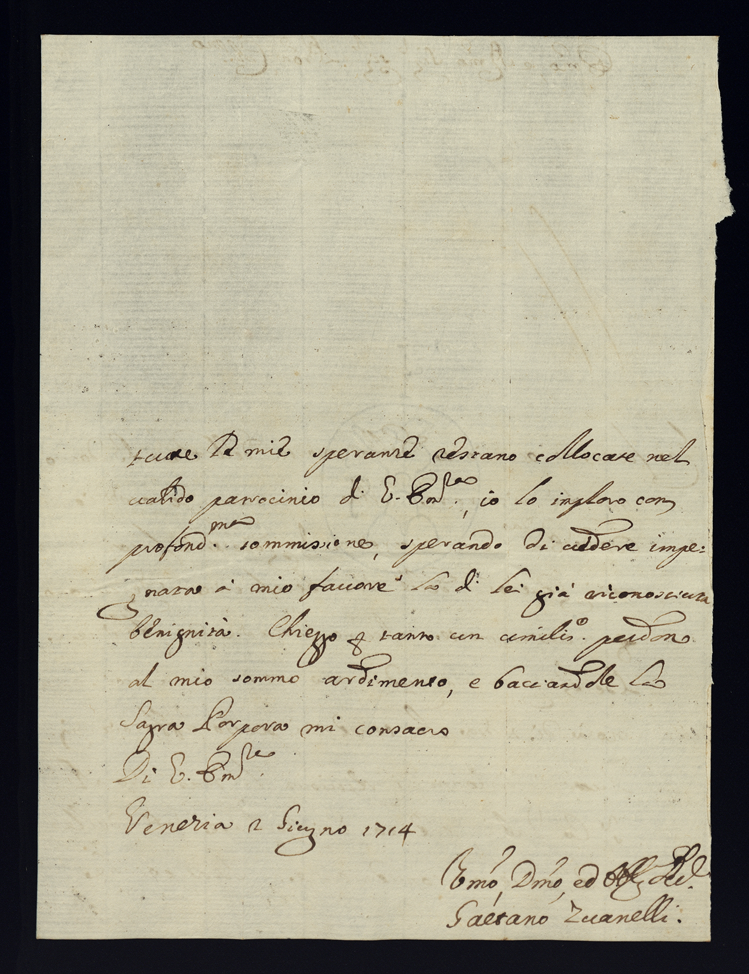 tutte le mie speranze restano collocate nel
valido patrocinio di E. Em.za, io lo imploro con
profond.ma sommissione, sperando di vedere impe=
gnata à mio favore la di lei già riconosciuta
benignità. Chieggo per tanto un umilis.o perdon
al mio sommo ardimento, e bacciandole la
Sagra Porpora mi consacro
Di E. Em.za
Venezia 2 Giugno 1714
Umo, Dmo, ed
Gaetano Zuanelli.